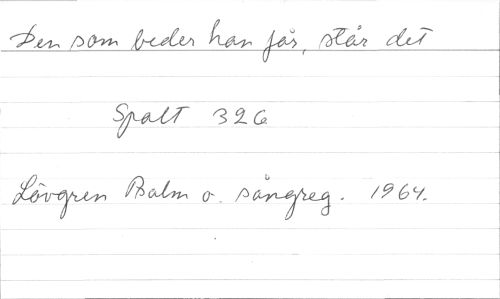 Den som beder han får, står det
Spalt 326
Lövgren Psalm o. sångreg. 1964.